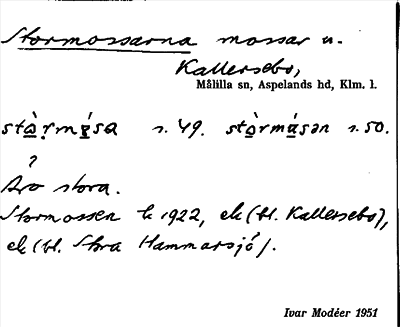 Stormossarna mossar u.
Kallersebo,
Målilla sn, Aspelands hd, Klm. l.
stòrmɷsa s. 49. stòrmɷsən s. 50.
?
Äro stora.
Stormossen k 1922, ek (bl. Kallersebo),
ek (bl. Stora Hammarsjö).
Ivar Modéer 1951